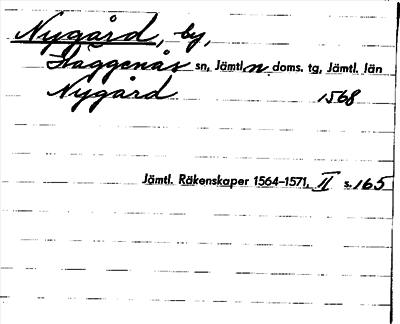 Nygård, by,
Häggenås sn, Jämtl. n. doms. tg, Jämtl. län
Nygård 1568
Jämtl. Räkenskaper 1564-1571, II s. 165